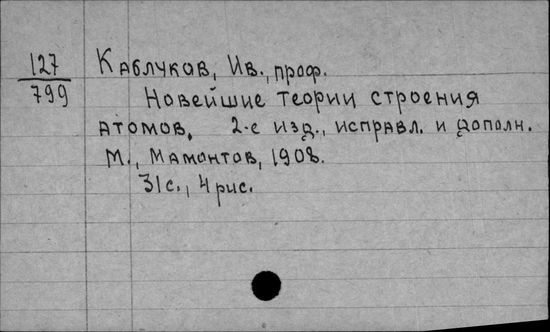 127
799
Каблуков, Ив., проф.
Новейшие теории строения
атомов. 2-е изд., исправл. и дополн.
М., Мамонтов, 1908.
31с., 4 рис.